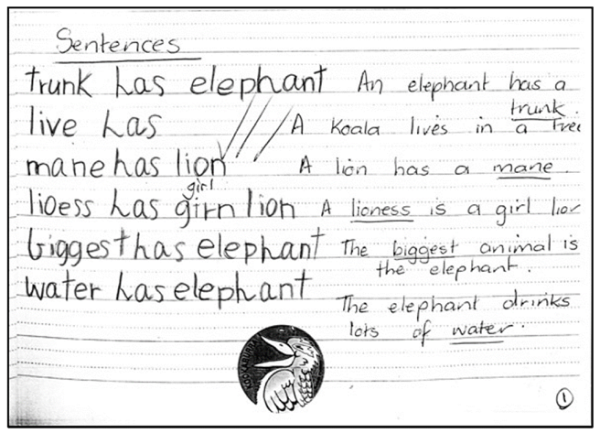 Sentences
trunk has elephant An elephant has a
trunk.
live has A Koala lives in a tree
mane has lion A lion has a mane.
girl
lioess has girn lion A lioness is a girl lion
biggest has elephant The biggest animal is
the elephant.
water has elephant The elephant drinks
lots of water.
1